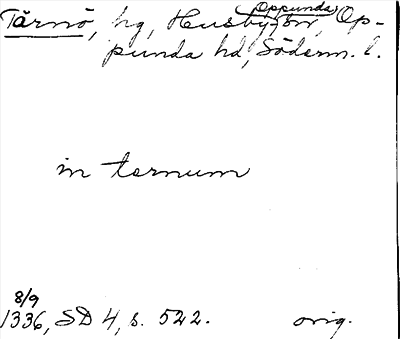 Tärnö, hg, Husby-Oppunda sn, Op-
punda hd, Söderm. l.
in ternum
8/9
1336, SD 4, s. 522. orig.